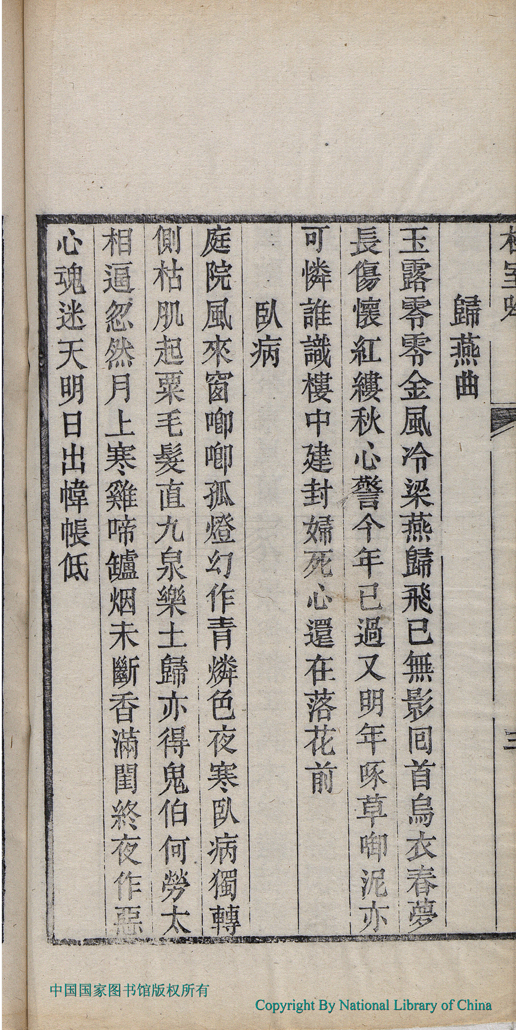 歸燕曲
玉露零零金風冷梁燕歸飛已無影回首烏衣春夢
長傷懷紅縷秋心警今年已過又明年啄草啣泥亦
可憐誰識樓中建封婦死心還在落花前
臥病
庭院風來窗唧唧孤燈幻作青燐色夜寒臥病獨轉
側枯肌起粟毛髮直九泉樂土歸亦得鬼伯何勞太
相逼忽然月上寒雞啼鑪烟未斷香滿閨終夜作惡
心魂迷天明日出幃帳低
中国国家图书馆版权所有
Copyright By National Library of China